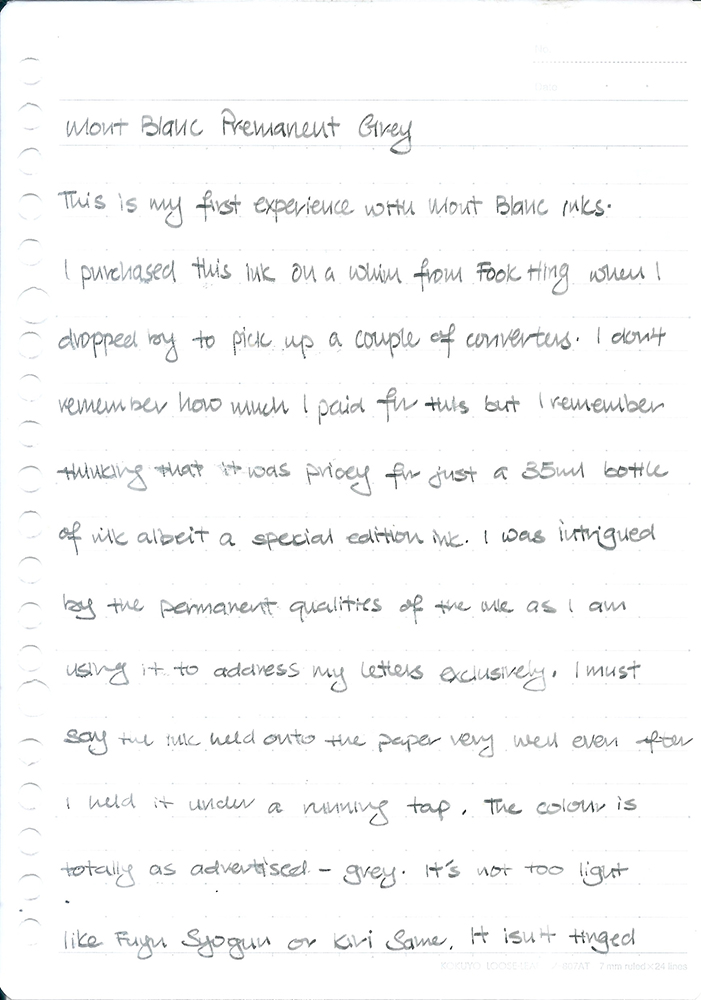 No.
Date
Mont Blanc Premanent Grey
This is my first experience with Mont Blanc inks.
I purchased this ink on a whim from Fook Hing when I
dropped by to pick up a couple of converters. I don't
remember how much I paid for this but I remember
thinking that it was pricey for just a 35ml bottle
of ink albeit a special edition ink. I was intrigued
by the permanent qualities of the ink as I am
using it to address my letters exclusively. I must
say the ink held onto the paper very well even after
I held it under a running tap. The colour is
totally as advertised - grey. It's not too light
like Fuyu Syogun or Kiri Same. It isn't tinged
KOKUYO LOOSE-LEAF 7 mm ruled × 24 lines